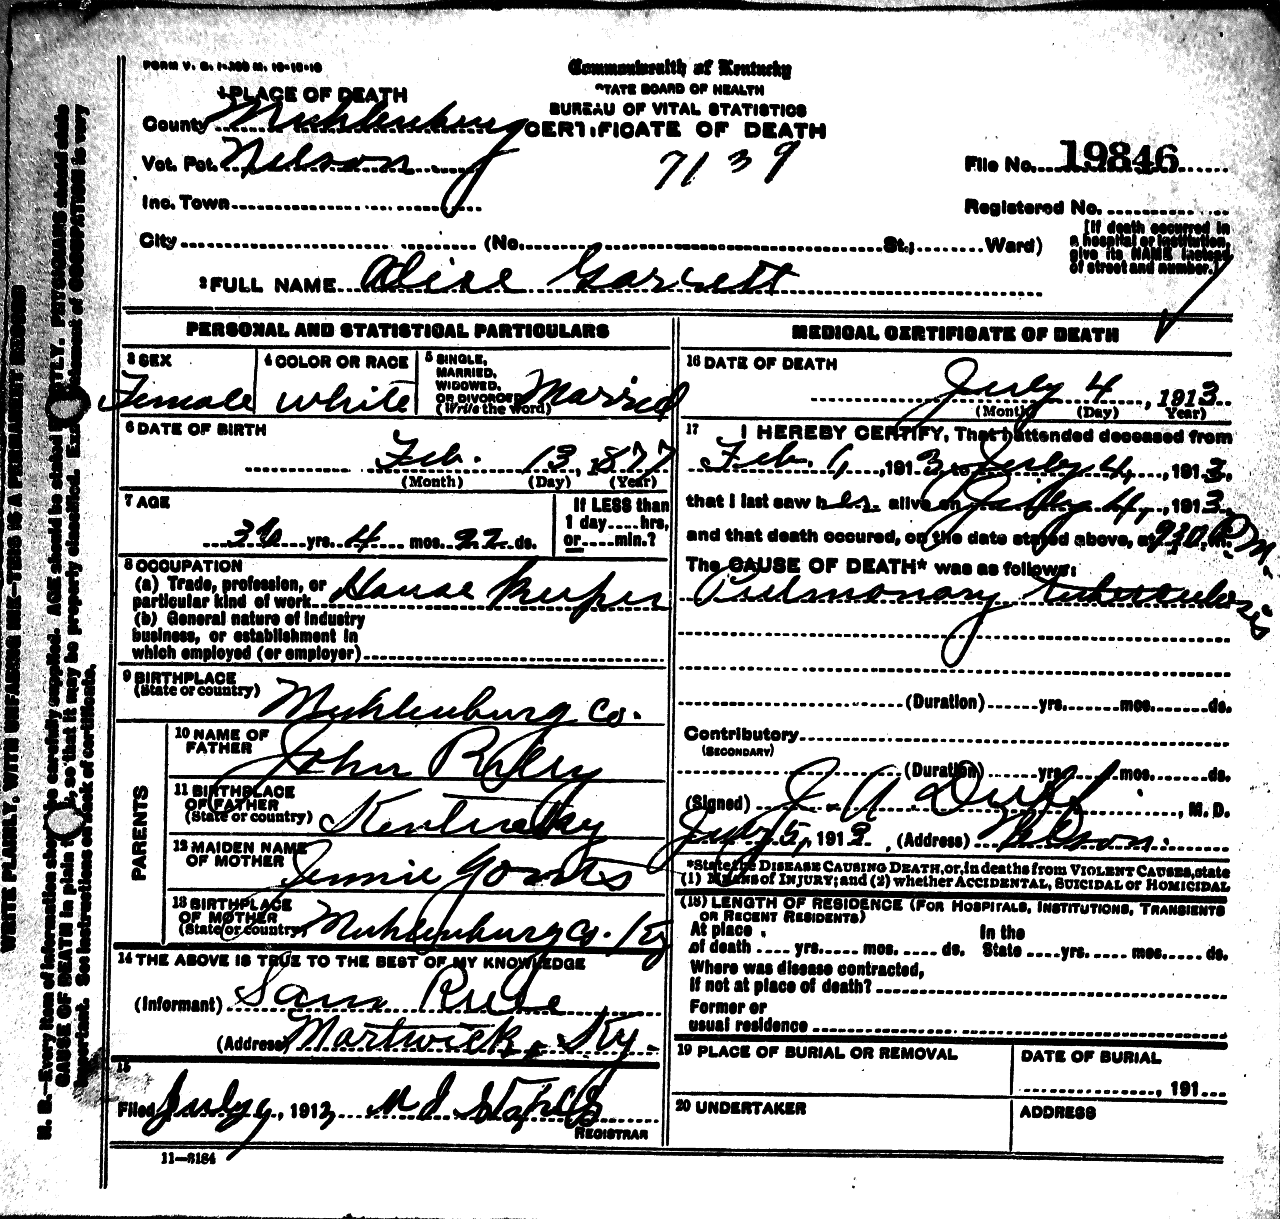 FORM V. S. 1-200 M. 10-10-10
Commonwealth of Kentucky
STATE BOARD OF HEALTH
BUREAU OF VITAL STATISTICS
CERTIFICATE OF DEATH
1 PLACE OF DEATH
County Muhlenburg
Vot. Pct. Nelson
7139
File No. 19846
Inc. Town
Registered No.
City (No. St.; Ward)
[If death occurred in a hospital or institution, give its NAME instead of street and number.]
2 FULL NAME Alise Garrett
PERSONAL AND STATISTICAL PARTICULARS
3 SEX Female
4 COLOR OR RACE white
5 SINGLE, MARRIED, WIDOWED, OR DIVORCED (Write the word) Married
6 DATE OF BIRTH
Feb. 13, 1877
(Month) (Day) (Year)
7 AGE
36 yrs. 4 mos. 22 ds.
If LESS than 1 day....hrs, or....min.?
8 OCCUPATION
(a) Trade, profession, or particular kind of work House Keeper
(b) General nature of industry business, or establishment in which employed (or employer)
9 BIRTHPLACE (State or country) Muhlenburg Co.
PARENTS
10 NAME OF FATHER John Riley
11 BIRTHPLACE OF FATHER (State or country) Kentucky
12 MAIDEN NAME OF MOTHER Jennie
13 BIRTHPLACE OF MOTHER (State or country) Muhlenburg Co. Ky
14 THE ABOVE IS TRUE TO THE BEST OF MY KNOWLEDGE
(Informant) Sam
(Address) Martwick, Ky.
15
Filed July 9, 1913
REGISTRAR
11-3184
MEDICAL CERTIFICATE OF DEATH
16 DATE OF DEATH
July 4, 1913
(Month) (Day) Year)
17 I HEREBY CERTIFY, That I attended deceased from
Feb. 1, 1913 to July 4, 1913,
that I last saw her alive on July 4, 1913
and that death occured, on the date stated above, at 930 P.M.
The CAUSE OF DEATH* was as follows:
Pulmonary tuberculosis
(Duration) yrs. mos. ds.
Contributory
(SECONDARY)
(Duration) yrs. mos. ds.
(Signed) J. A. Duff, M. D.
July 5, 1913, (Address) Nelson.
*State the DISEASE CAUSING DEATH, or, in deaths from VIOLENT CAUSES, state
(1) MEANS OF INJURY; and (2) whether ACCIDENTAL, SUICIDAL or HOMICIDAL
(18) LENGTH OF RESIDENCE (FOR HOSPITALS, INSTITUTIONS, TRANSIENTS OR RECENT RESIDENTS)
At place of death .... yrs. mos. ds. In the State yrs. mos. ds.
Where was disease contracted,
If not at place of death?
Former or
usual residence
19 PLACE OF BURIAL OR REMOVAL
DATE OF BURIAL
, 191
20 UNDERTAKER
ADDRESS
WRITE PLAINLY, WITH UNFADING INK—THIS IS A PERMANENT RECORD
N. B.—Every item of information should be carefully supplied. AGE should be stated EXACTLY. PHYSICIANS should state
CAUSE OF DEATH in plain terms, so that it may be properly classified. Exact statement of OCCUPATION is very
important. See instructions on back of certificate.